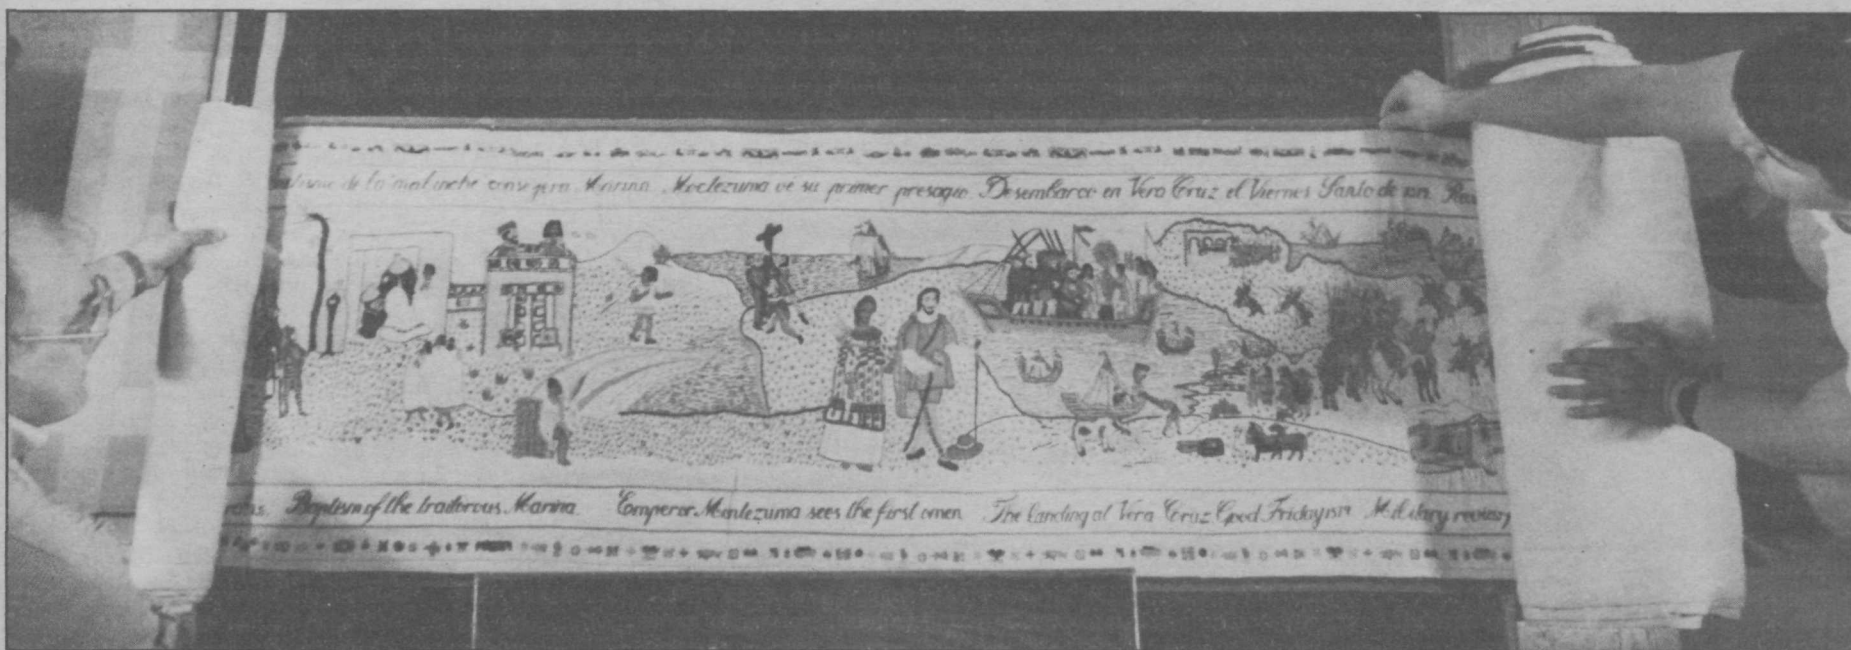 de la malinche consejera Marina. Moctezuma vé su primer presagio. Desembarco en Vera Cruz el Viernes Santo de
Baptism of the traitorous Marina. Emperor Montezuma sees the first omen. The landing at Vera Cruz, Good Friday 1519 Military